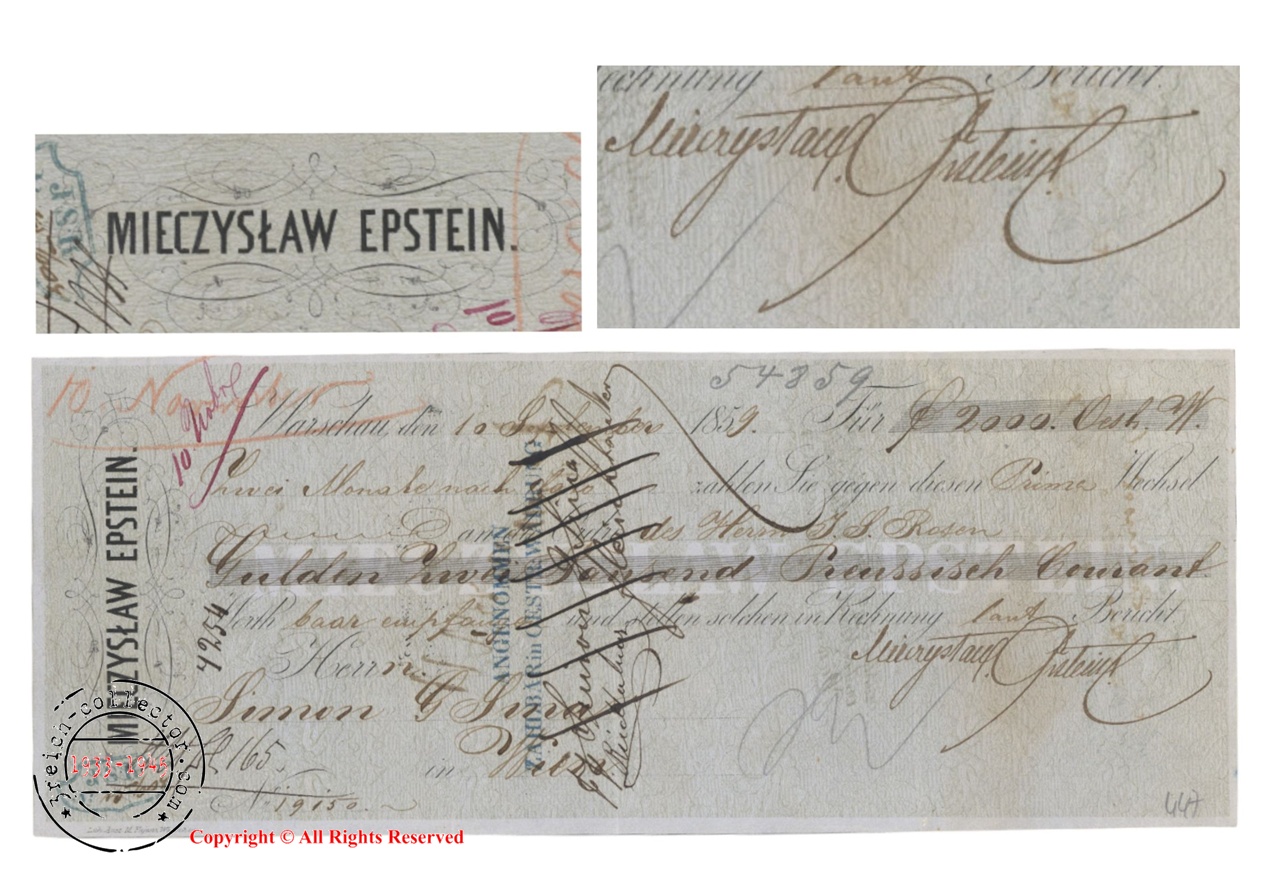 echnung laut Bericht
Mieczyslaw Epstein
MIECZYSŁAW EPSTEIN.
10
54859
10 November
10 Nbre
Warschau, den 10 September 1859. Für f 2000. Oest. W.
Zwei Monate nach dato zahlen Sie gegen diesen Prima Wechsel
an des Herrn S. S. Rosen
Gulden Zwei Tausend Preussisch Courant.
Werth baar empfangen und stellen solchen in Rechnung laut Bericht
Mieczyslaw Epstein
Herrn
Simon G Sina
in Wien
MIECZYSŁAW EPSTEIN.
MIECZYSŁAW EPSTEIN
ANGENOMMEN
ZAHLBAR in OESTR. WÄHRUNG
4254
165.
No 19150.
447
3reich-collector.com
1933-1945
Copyright © All Rights Reserved